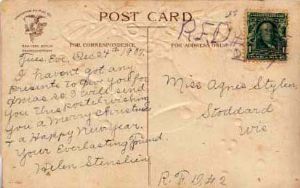 POST CARD
FOR CORRESPONDENCE
FOR ADDRESS ONLY
RFD
Tues. Eve, Dec 24th 1907.
I haven't got any
presents to give you for
Xmas so I will send
you this postal wishing
you a Merry Christmas
& a Happy New Year.
Your Everlasting Friend.
Helen Stenslien
Miss Agnes Styler
Stoddard
Wis
R.F.D. No 2